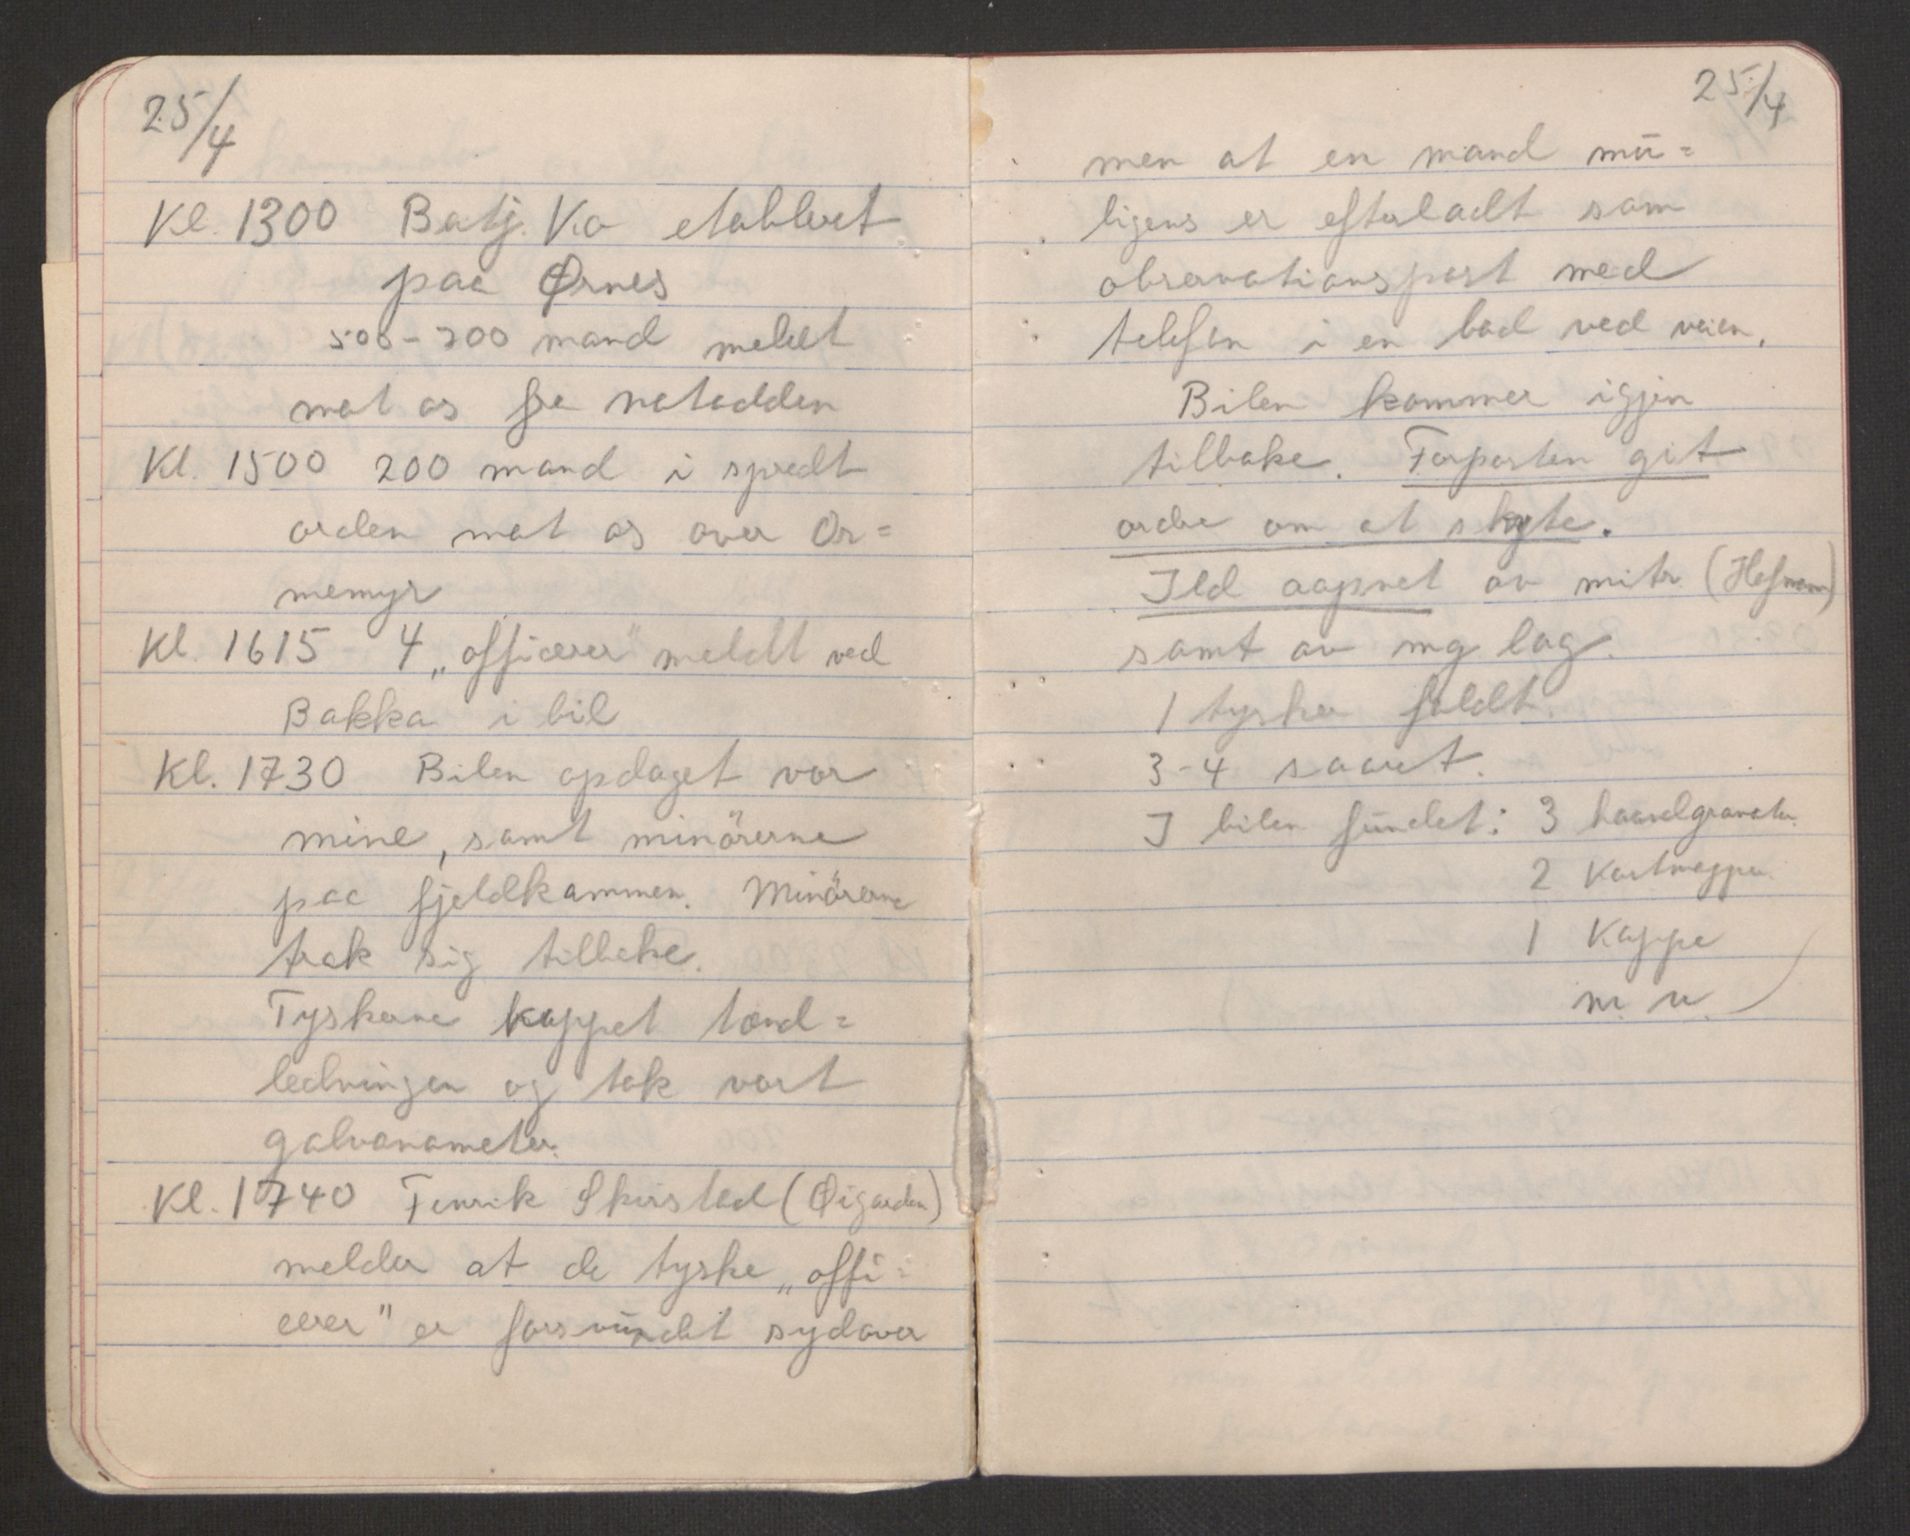 25/4
Kl. 1300 Batj. Ko etablert
paa Ørnes
500-700 mand meldt
mot os fra Notodden
Kl. 1500 200 mand i spredt
orden mot os over Or=
memyr
Kl. 1615 - 4 „officerer" meldt ved
Bakka i bil
Kl. 1730 Bilen opdaget vor
mine, samt minörerne
paa fjeldkammen. Minörerne
trak sig tilbake.
Tyskerne kappet tænd=
ledningen og tok vort
galvanometer.
Kl. 1740 Fenrik Skirstad (Øigarden)
melder at de tyske „offi=
cerer" er forsvundet sydover
25/4
men at en mand mu=
ligens er efterladt som
observationspost med
telefon i en bod ved veien.
Bilen kommer igjen
tilbake. Forposten git
ordre om at skyte.
Ild aapnet av mitr. (Hofmann)
samt av mg lag.
1 tysker faldt.
3-4 saaret.
I bilen fundet: 3 haandgranater.
2 Kartmapper.
1 Kappe
m. v.